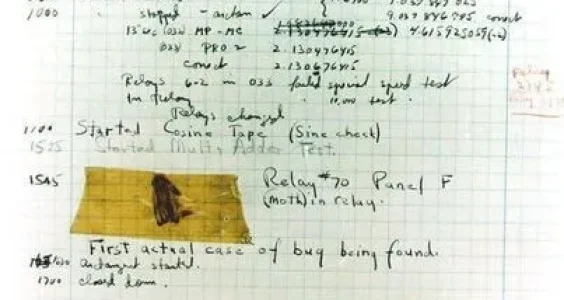 1000 " stopped - antan ✓ 9.037 846 995 correct
13" uc (032) MP - MC 2.130476415 (-3) 4.615925059 (-2)
033 PRO 2 2.130476415
correct 2.130676415
Relays 6-2 in 033 failed special speed test
In Relay " 11,000 test.
Relays changed
1100 Started Cosine Tape (Sine check)
1525 Started Mult + Adder Test.
1545 Relay #70 Panel F
(moth) in relay.
First actual case of bug being found.
1630 antangent started.
1700 closed down.